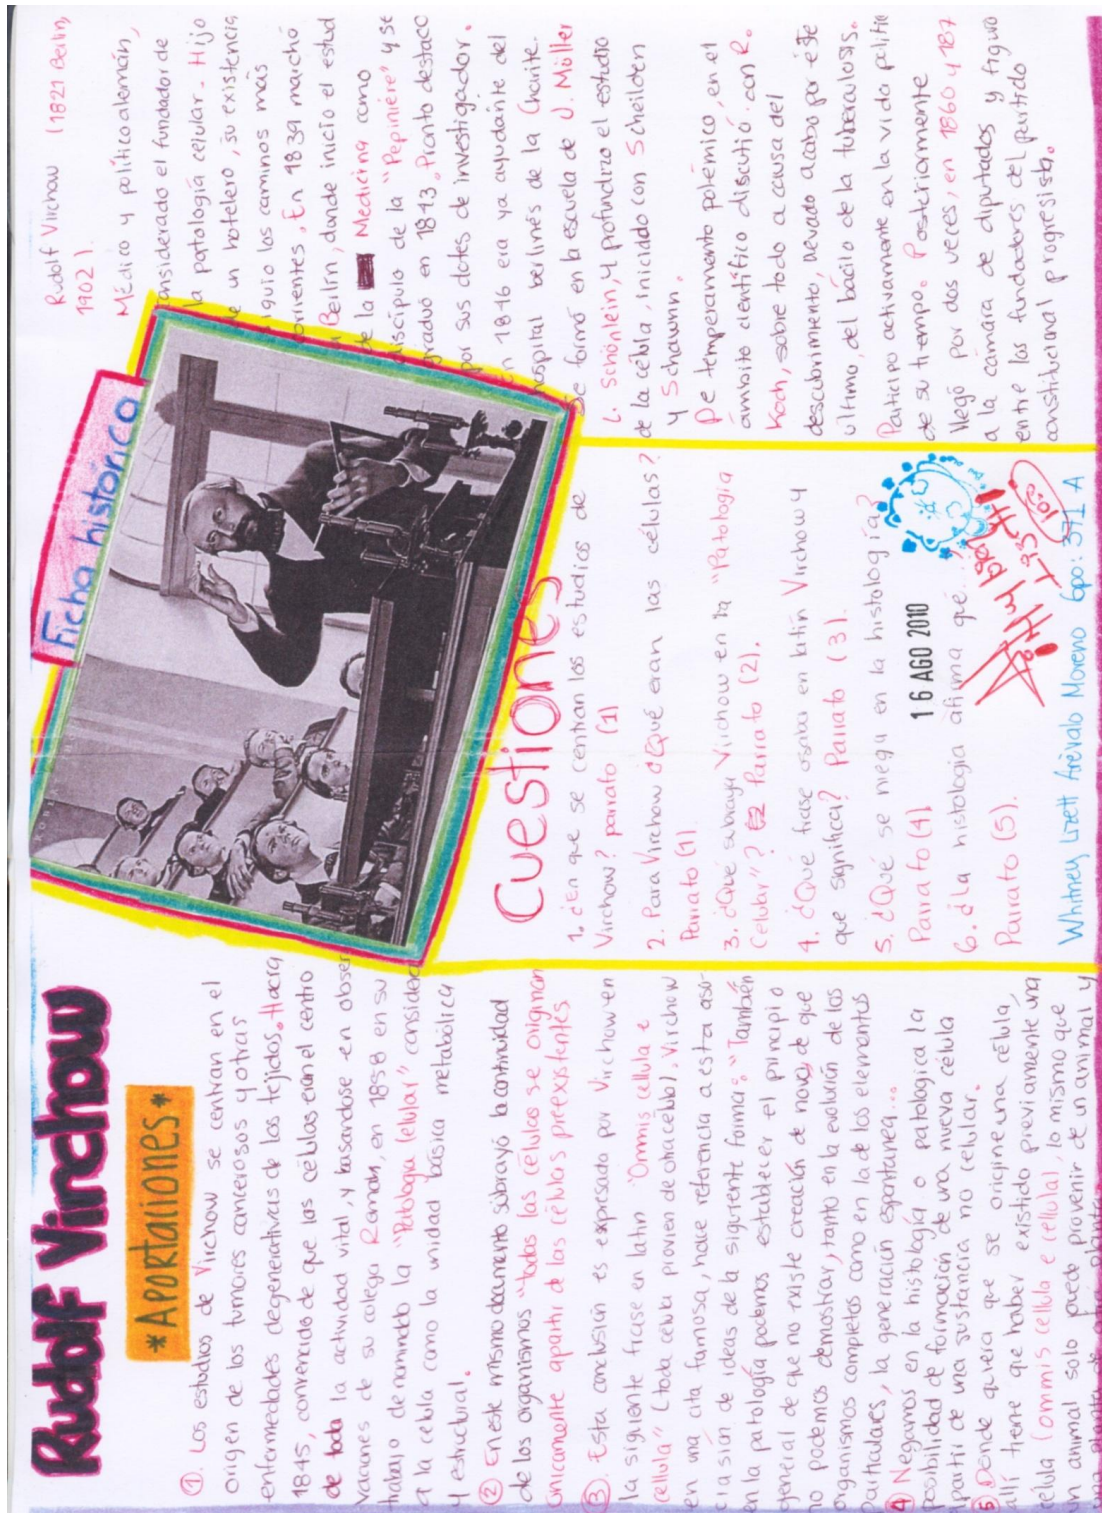 Rudolf Virchow
*Aportaciones*
①. Los estudios de Virchow se centran en el
origen de los tumores cancerosos y otras
enfermedades degenerativas de los tejidos. Hacia
1845, convencido de que las células eran el centro
de toda la actividad vital, y basandose en obser
vaciones de su colega Remak, en 1858 en su
trabajo denominado la "Patologia Celular" considera
a la célula como la unidad básica metabólica
y estructural.
② En este mismo documento subrayó la continuidad
de los organismos "todas las células se originan
únicamente apartir de las células preexistentes
③. Esta conclusión es expresada por Virchow en
la siguiente frase en latin "Ommis cellula e
cellula" (toda célula provien de otra célula). Virchow
en una cita famosa, hace referencia a esta aso-
ciasión de ideas de la siguiente forma: "También
en la patología podemos establecer el principio
general de que no existe creación de novo, de que
no podemos demostrar, tanto en la evolución de los
organismos completos como en la de los elementos
particulares, la generación espontanea...
④ Negamos en la histología o patologica la
posibilidad de formación de una nueva célula
apartir de una sustancia no celular.
⑤ Donde quiera que se origine una célula,
allí tiene que haber existido previamente una
célula (ommis cellula e cellula), lo mismo que
un animal solo puede provenir de un animal y
Ficha historica
Cuestiones
1. ¿En que se centran los estudios de
Virchow? parrafo (1)
2. Para Virchow ¿Qué eran las células?
Parrafo (1).
3. ¿Qué subraya Virchow en la "Patologia
Celular"? Parrafo (2).
4. ¿Qué frase osaba en latin Virchow y
que significa? Parrafo (3).
5. ¿Qué se niega en la histología?
Parrafo (4)
6. ¿La histologia afirma qué.
Parrafo (5).
16 AGO 2010
Whitney Lizett Arévalo Moreno Gpo: 371 A
Rudolf Virchow (1821 Berlin,
1902).
Médico y político alemán,
considerado el fundador de
la patología celular. Hijo
de un hotelero, su existencia
siguio los caminos más
corrientes. En 1839 marchó
a Berlín, donde inicio el estud
de la Medicina como
discípulo de la "Pepiniere" y se
graduó en 1843. Pronto destaco
por sus dotes de investigador.
en 1846 era ya ayudante del
hospital berlinés de la Charite.
Se formó en la escuela de J. Müller
L. Schönlein, y profundizo el estudio
de la célula, iniciado con Scheilden
y Schawnn.
De temperamento polémico, en el
ámbito científico discutió, con R.
Koch, sobre todo a causa del
descubrimiento, llevado acabo por éste
ultimo, del bácilo de la tuberculosis.
Participo activamente en la vida politic
de su tiempo. Posteriormente
llegó por dos veces, en 1860 y 187
a la cámara de diputados y figuro
entre los fundadores del partido
constitucional progresista.